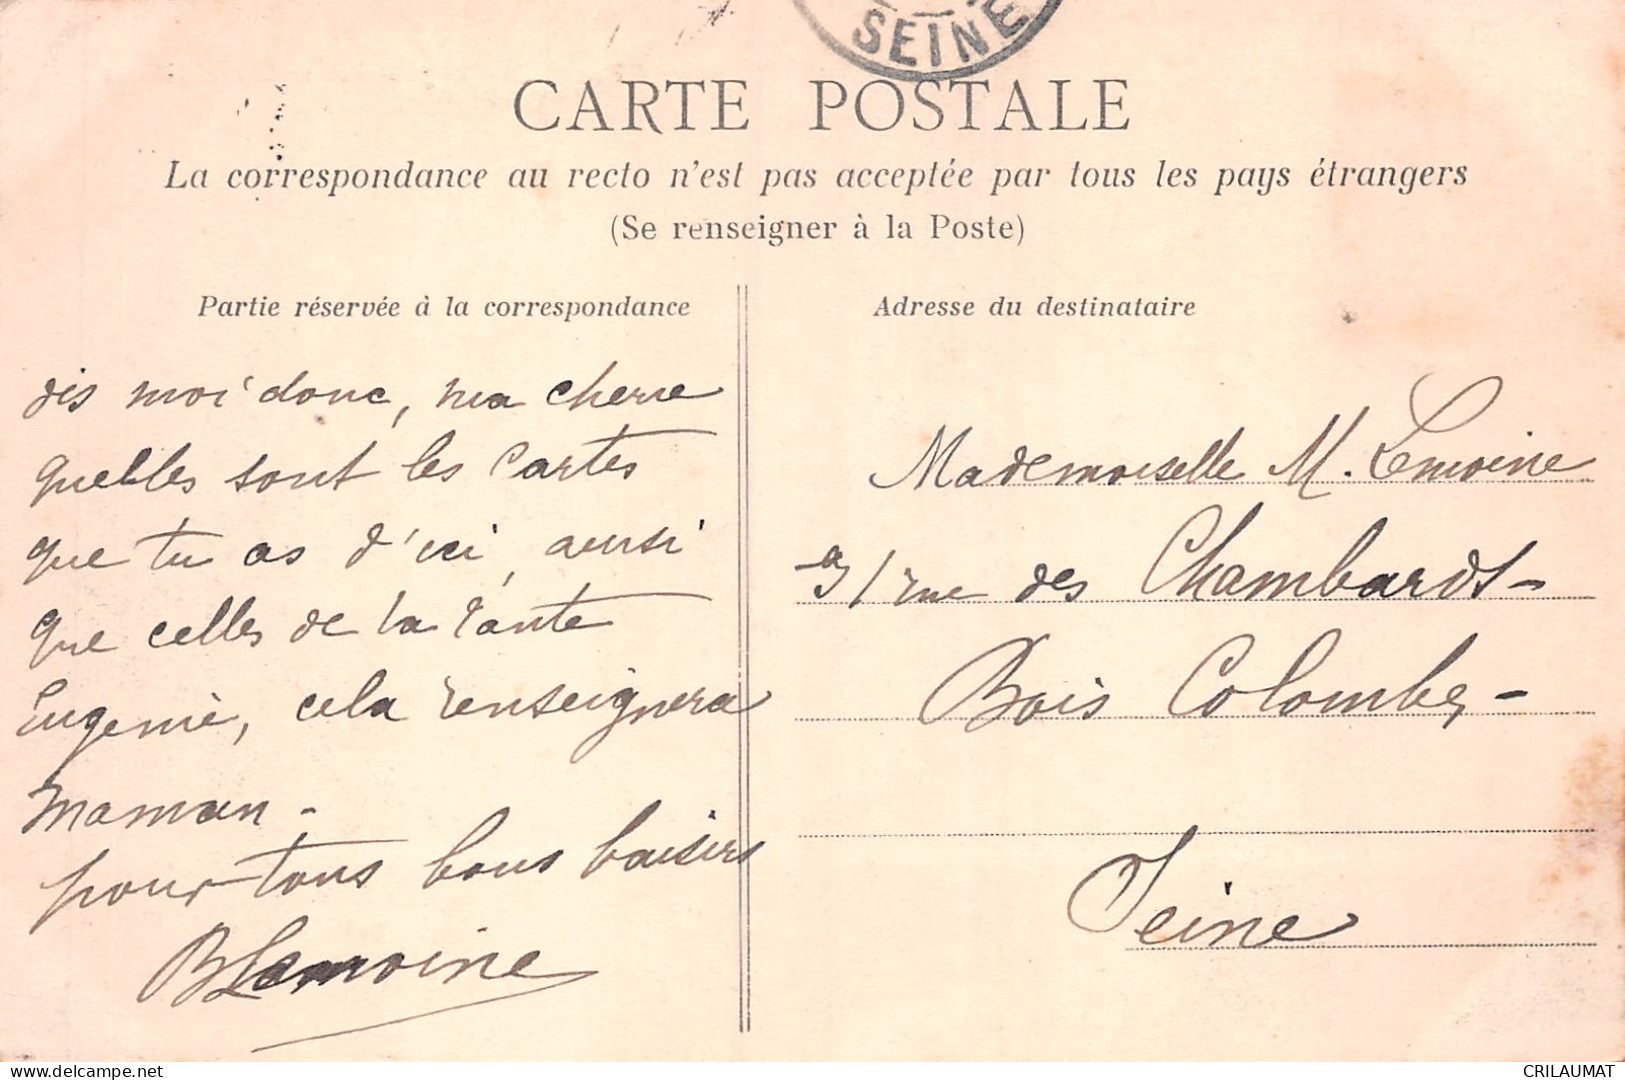 SEINE
CARTE POSTALE
La correspondance au recto n'est pas acceptée par tous les pays étrangers
(Se renseigner à la Poste)
Partie réservée à la correspondance
dis moi donc, ma cherre
quelles sont les cartes
que tu as d'ici, aussi
que celles de la tante
Eugenie, cela renseignera
maman -
pour tous bons baisirs
BLemoine
Adresse du destinataire
Mademoiselle M. Lemoine
31 rue des Chambards -
Bois Colombes -
Seine
delcampe.net
CRILAUMAT